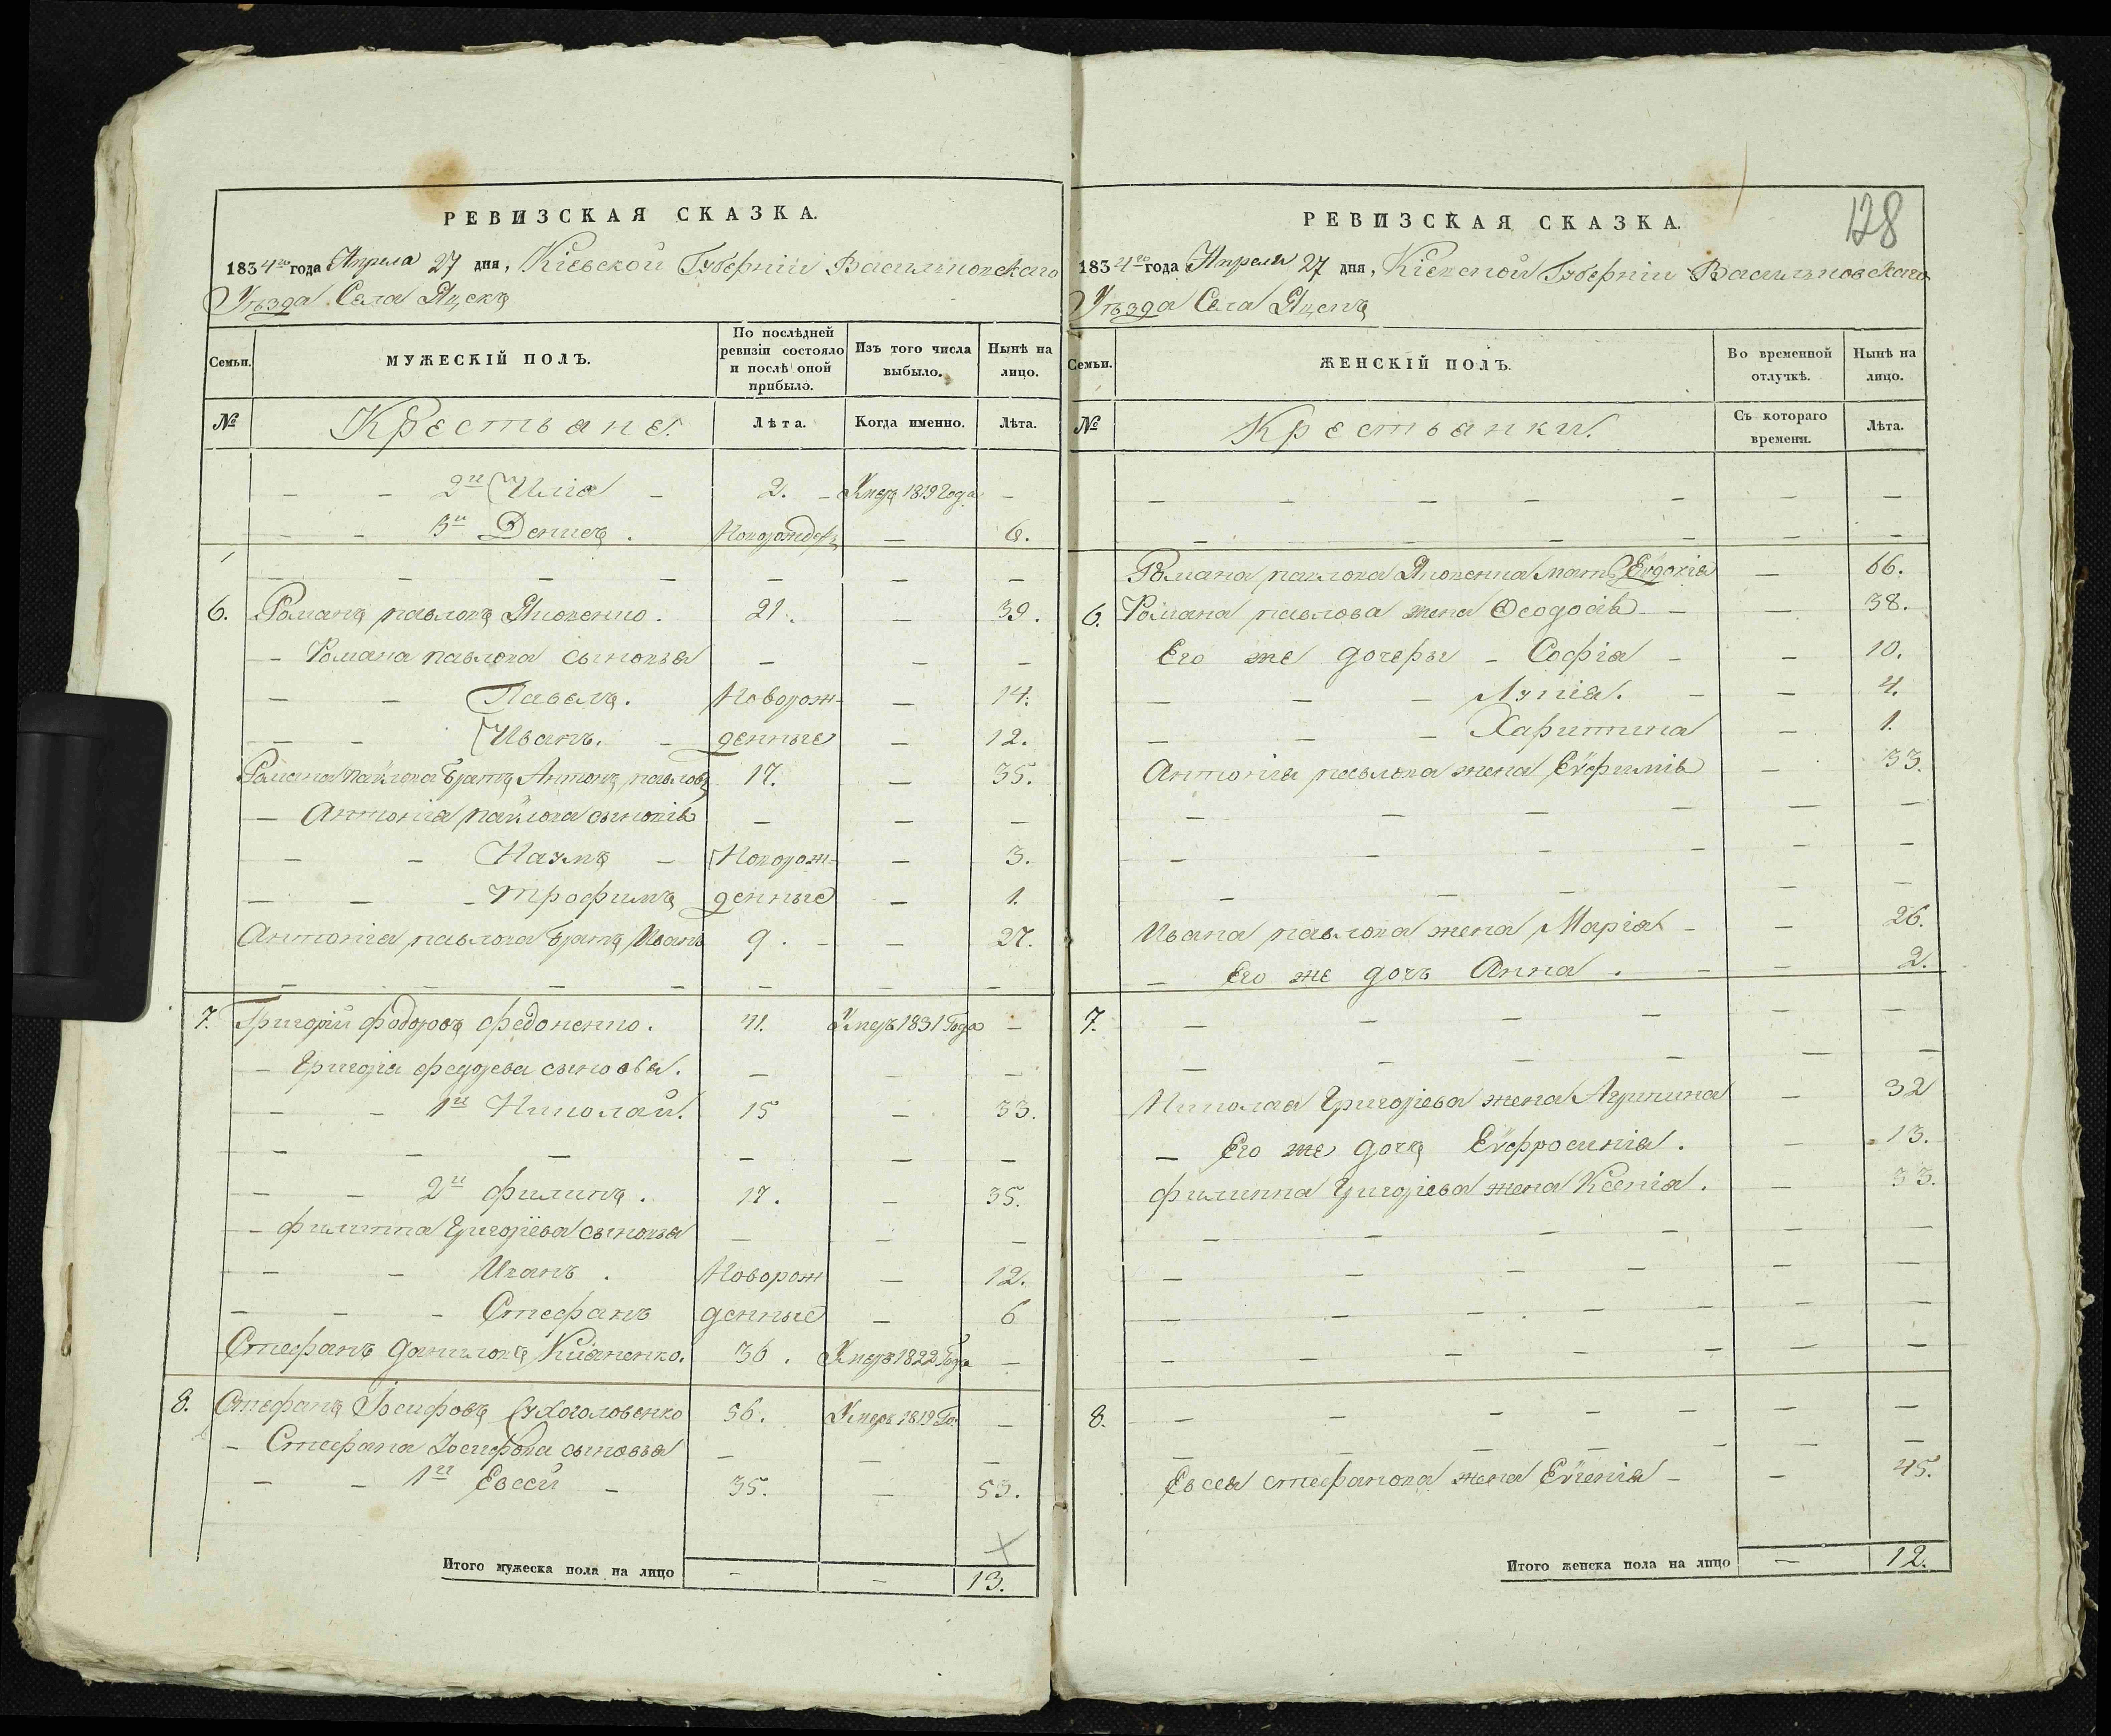 РЕВИЗСКАЯ СКАЗКА.
1834го года Апреля 27 дня, Кіевской Губерніи Васильковскаго
Уѣзда Села Яцекъ
Семьи.
МУЖЕСКІЙ ПОЛЪ.
По послѣдней ревизіи состояло и послѣ оной прибыло.
Изъ того числа выбыло.
Нынѣ на лицо.
№ Крестьяне. Лѣта. Когда именно. Лѣта.
— — 2й Илія — 2. — Умеръ 1819 Года —
— — 3й Денисъ. Новорожденъ — 6.
— — — — — — —
6. Романъ павловъ 21. — 39.
— Романа павлова сыновья — — —
— — Павелъ. Новорож- — 14.
— — Иванъ. — денные — 12.
Романа павлова братъ Антонъ павловъ 17. — 35.
— Антонія павлова сыновья — — —
— — Наумъ — Новорож- — 3.
— — — Трофимъ денные — 1.
Антонія павлова братъ Иванъ 9. — — 27.
— — — — — — — —
7. Григорій федоровъ федоненко. 41. Умеръ 1831 Года —
— Григорія федорева сыновья. — — —
— — 1й Николай. 15 — 33.
— — — — — —
— — 2й филипъ. 17. — 35.
— филиппа Григоріева сыновья — — —
— — Иванъ. Новорож — 12.
— — — Стефанъ денные — 6
Стефанъ даниловъ Кияненко. 36. Умеръ 1822 Года —
8. Стефанъ Іосифовъ Сухоголовенко 56. Умеръ 1819 Го. —
— Стефана Іосифова сыновья — — —
— — 1й Евсей — 35. — 53.
Итого мужеска пола на лицо — — 13.
128
РЕВИЗСКАЯ СКАЗКА.
1834го года Апреля 27 дня, Кіевской Губерніи Васильковскаго
Уѣзда Села Яцекъ
Семьи.
ЖЕНСКІЙ ПОЛЪ.
Во временной отлучкѣ.
Нынѣ на лицо.
№ Крестьянки. Съ котораго времени. Лѣта.
— — — — — — —
— — — — — — —
Романа павлова мать Евдокія — 66.
6. Романа павлова жена Феодосія — — 38.
Его же дочеры — Софія — — 10.
— — — Лукія. — — 4.
— — — Харитина — 1.
Антонія павлова жена Евфимія — 33.
— — — — — —
— — — — — —
— — — — —
Ивана павлова жена Марія — — 26.
— Его же дочь Анна. — — 2.
7. — — — — — —
— — — — — —
Николая Григоріева жена Агрипина — 32
— Его же дочъ Евфросинія. — 13.
филиппа Григоріева жена Ксенія. — 33.
— — — — — —
— — — — — —
— — — — — —
— — — — — —
8. — — — — — — —
— — — — — —
Евсея стефанова жена Евгенія — — 45.
Итого женска пола на лицо — 12.